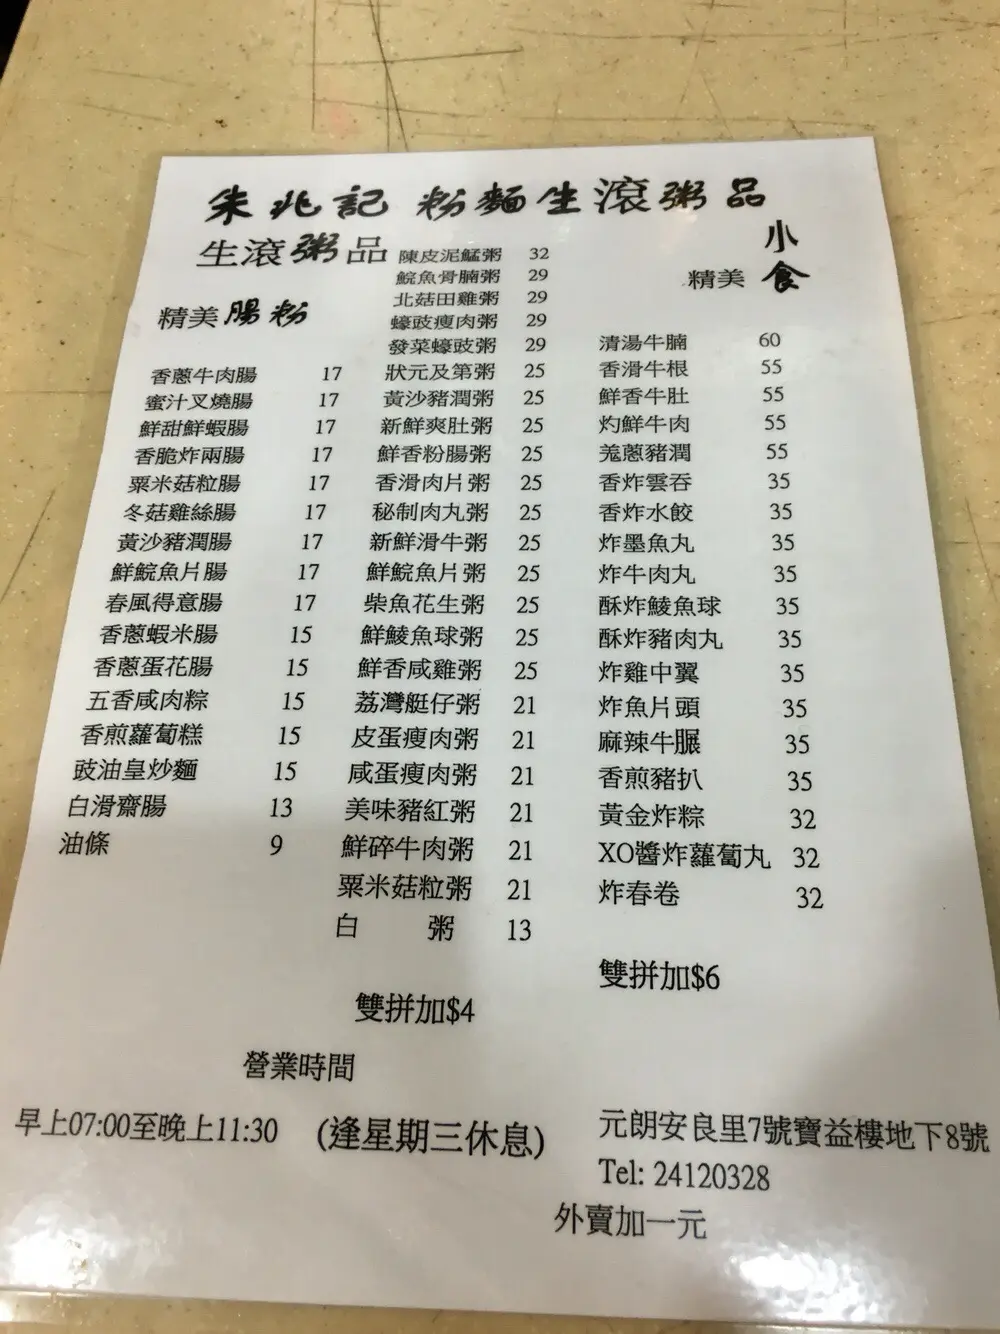 朱兆記 粉麵生滾粥品
生滾粥品
陳皮泥鯭粥 32
鯇魚骨腩粥 29
北菇田雞粥 29
蠔豉瘦肉粥 29
發菜蠔豉粥 29
狀元及第粥 25
黃沙豬潤粥 25
新鮮爽肚粥 25
鮮香粉腸粥 25
香滑肉片粥 25
秘制肉丸粥 25
新鮮滑牛粥 25
鮮鯇魚片粥 25
柴魚花生粥 25
鮮鯪魚球粥 25
鮮香咸雞粥 25
荔灣艇仔粥 21
皮蛋瘦肉粥 21
咸蛋瘦肉粥 21
美味豬紅粥 21
鮮碎牛肉粥 21
粟米菇粒粥 21
白 粥 13
雙拼加$4
精美腸粉
香蔥牛肉腸 17
蜜汁叉燒腸 17
鮮甜鮮蝦腸 17
香脆炸兩腸 17
粟米菇粒腸 17
冬菇雞絲腸 17
黃沙豬潤腸 17
鮮鯇魚片腸 17
春風得意腸 17
香蔥蝦米腸 15
香蔥蛋花腸 15
五香咸肉粽 15
香煎蘿蔔糕 15
豉油皇炒麵 15
白滑齋腸 13
油條 9
精美小食
清湯牛腩 60
香滑牛根 55
鮮香牛肚 55
灼鮮牛肉 55
羗蔥豬潤 55
香炸雲吞 35
香炸水餃 35
炸墨魚丸 35
炸牛肉丸 35
酥炸鯪魚球 35
酥炸豬肉丸 35
炸雞中翼 35
炸魚片頭 35
麻辣牛𦟌 35
香煎豬扒 35
黃金炸粽 32
XO醬炸蘿蔔丸 32
炸春卷 32
雙拼加$6
營業時間
早上07:00至晚上11:30
(逢星期三休息)
元朗安良里7號寶益樓地下8號
Tel: 24120328
外賣加一元